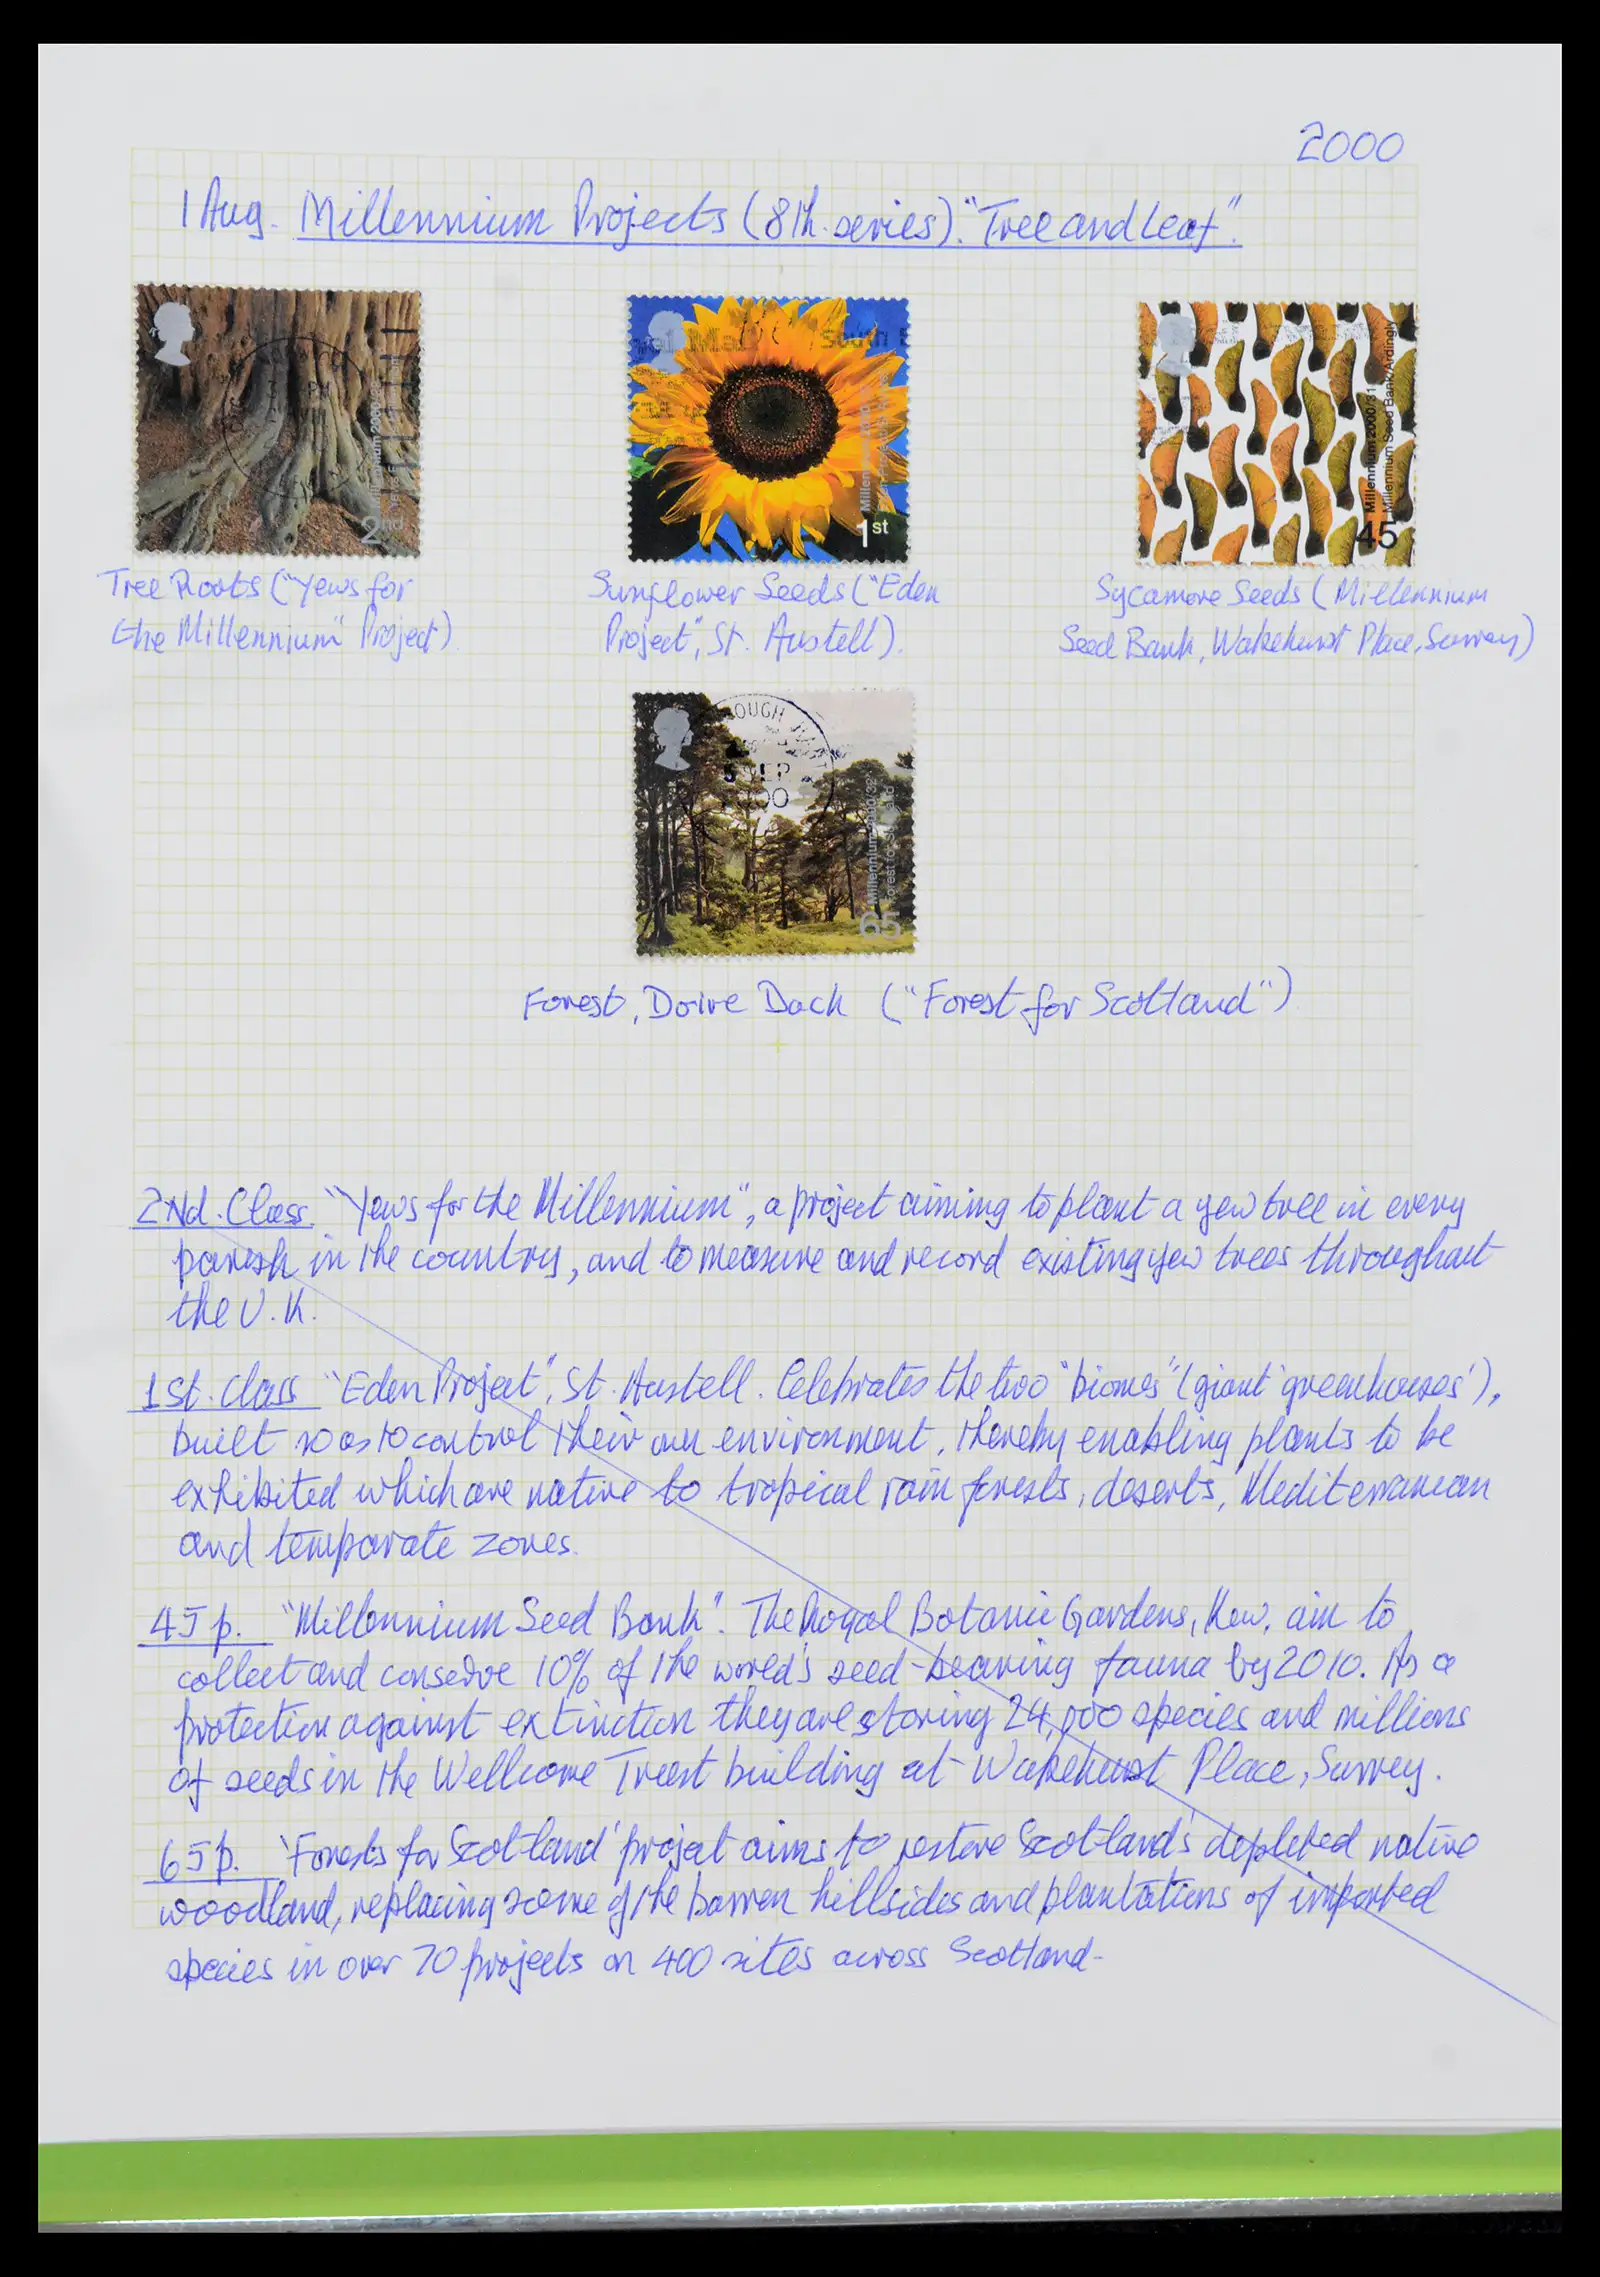 2000
1 Aug. Millennium Projects (8th. series). "Tree and Leaf".
2nd
Millennium 2000
1st
Millennium 2000/31
Millennium Seed Bank/Ardingly
45
Tree Roots ("Yews for
the Millennium" Project)
Sunflower Seeds ("Eden
Project", St. Austell).
Sycamore Seeds (Millennium
Seed Bank, Wakehurst Place, Surrey)
SEP
Millennium 2000/32
Forest for Scotland
65
Forest, Doire Dach ("Forest for Scotland")
2nd. Class. "Yews for the Millennium", a project aiming to plant a yew tree in every
parish in the country, and to measure and record existing yew trees throughout
the U.K.
1st. Class "Eden Project", St. Austell. Celebrates the two "biomes" (giant 'greenhouses'),
built so as to control their own environment, thereby enabling plants to be
exhibited which are native to tropical rain forests, deserts, Mediterranean
and temparate zones.
45p. "Millennium Seed Bank". The Royal Botanic Gardens, Kew, aim to
collect and conserve 10% of the world's seed-bearing fauna by 2010. As a
protection against extinction they are storing 24,000 species and millions
of seeds in the Wellcome Trust building at Wakehurst Place, Surrey.
65p. 'Forests for Scotland' project aims to restore Scotland's depleted native
woodland, replacing some of the barren hillsides and plantations of imported
species in over 70 projects on 400 sites across Scotland-